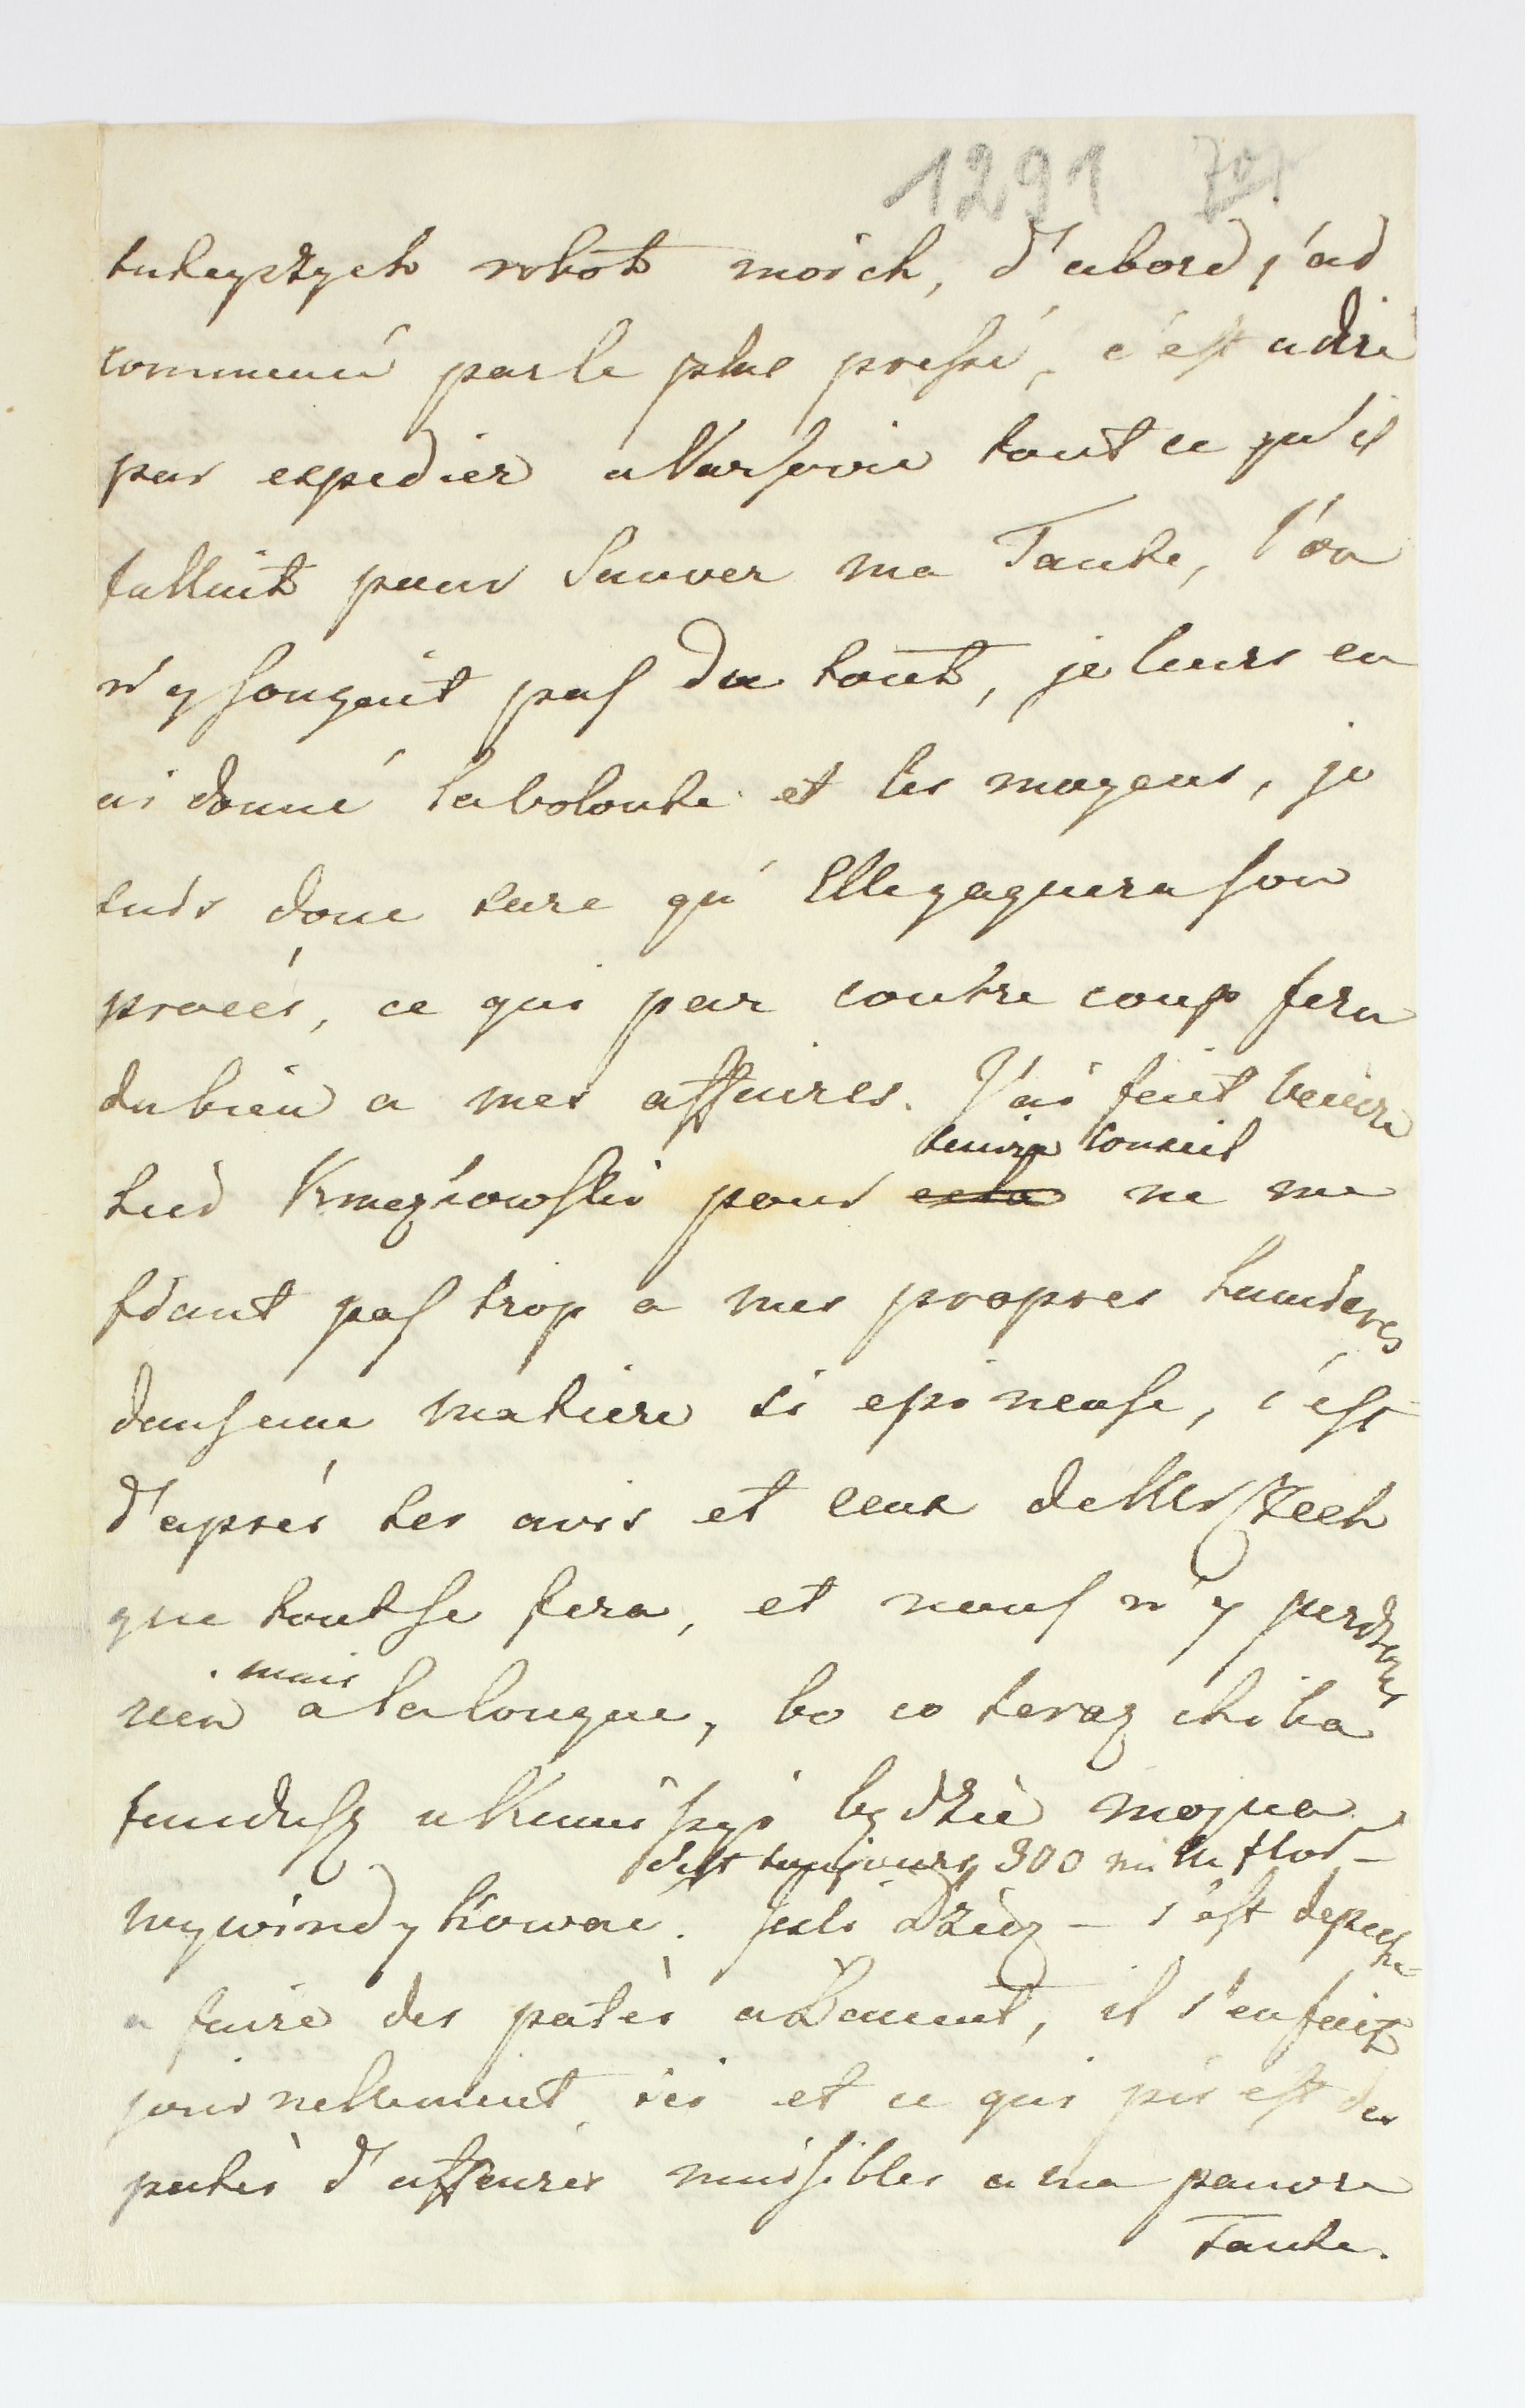 1291 707
tuteyszych robót moich, d'abord j'ai
commencé par le plus pressé, c'est a dire
par expedier a Varsovie tout ce qu'il
fallait pour sauver ma Tante, l'on
n'y songait pas du tout, je leurs en
ai donné la volonte et les moyens, je
suis donc sure qu'Elle gagnera son
procés, ce qui par contre coup fera
du bien a mes affaires. J'ai fait venir
tenir conseil
ici Kniaziowski pour cela ne me
fiant pas trop a mes propres lumieres
dans une matiere si epineuse, c'est
d'aprés ses avis et ceux de
que tout se fera, et nous n'y perdrons
mais
rien a la longue, bo co teraz chiba
fundusz u Kommissyi będzie mojna
c'est toujours 300 mille flor-
wywindykowac. Jesli Dziedz - s'est depeché
a faire des patès a Banut, il s'en fait
journellement ici et ce qui pis est des
patès d'affaires nuisibles a ma pauvre
Tante.